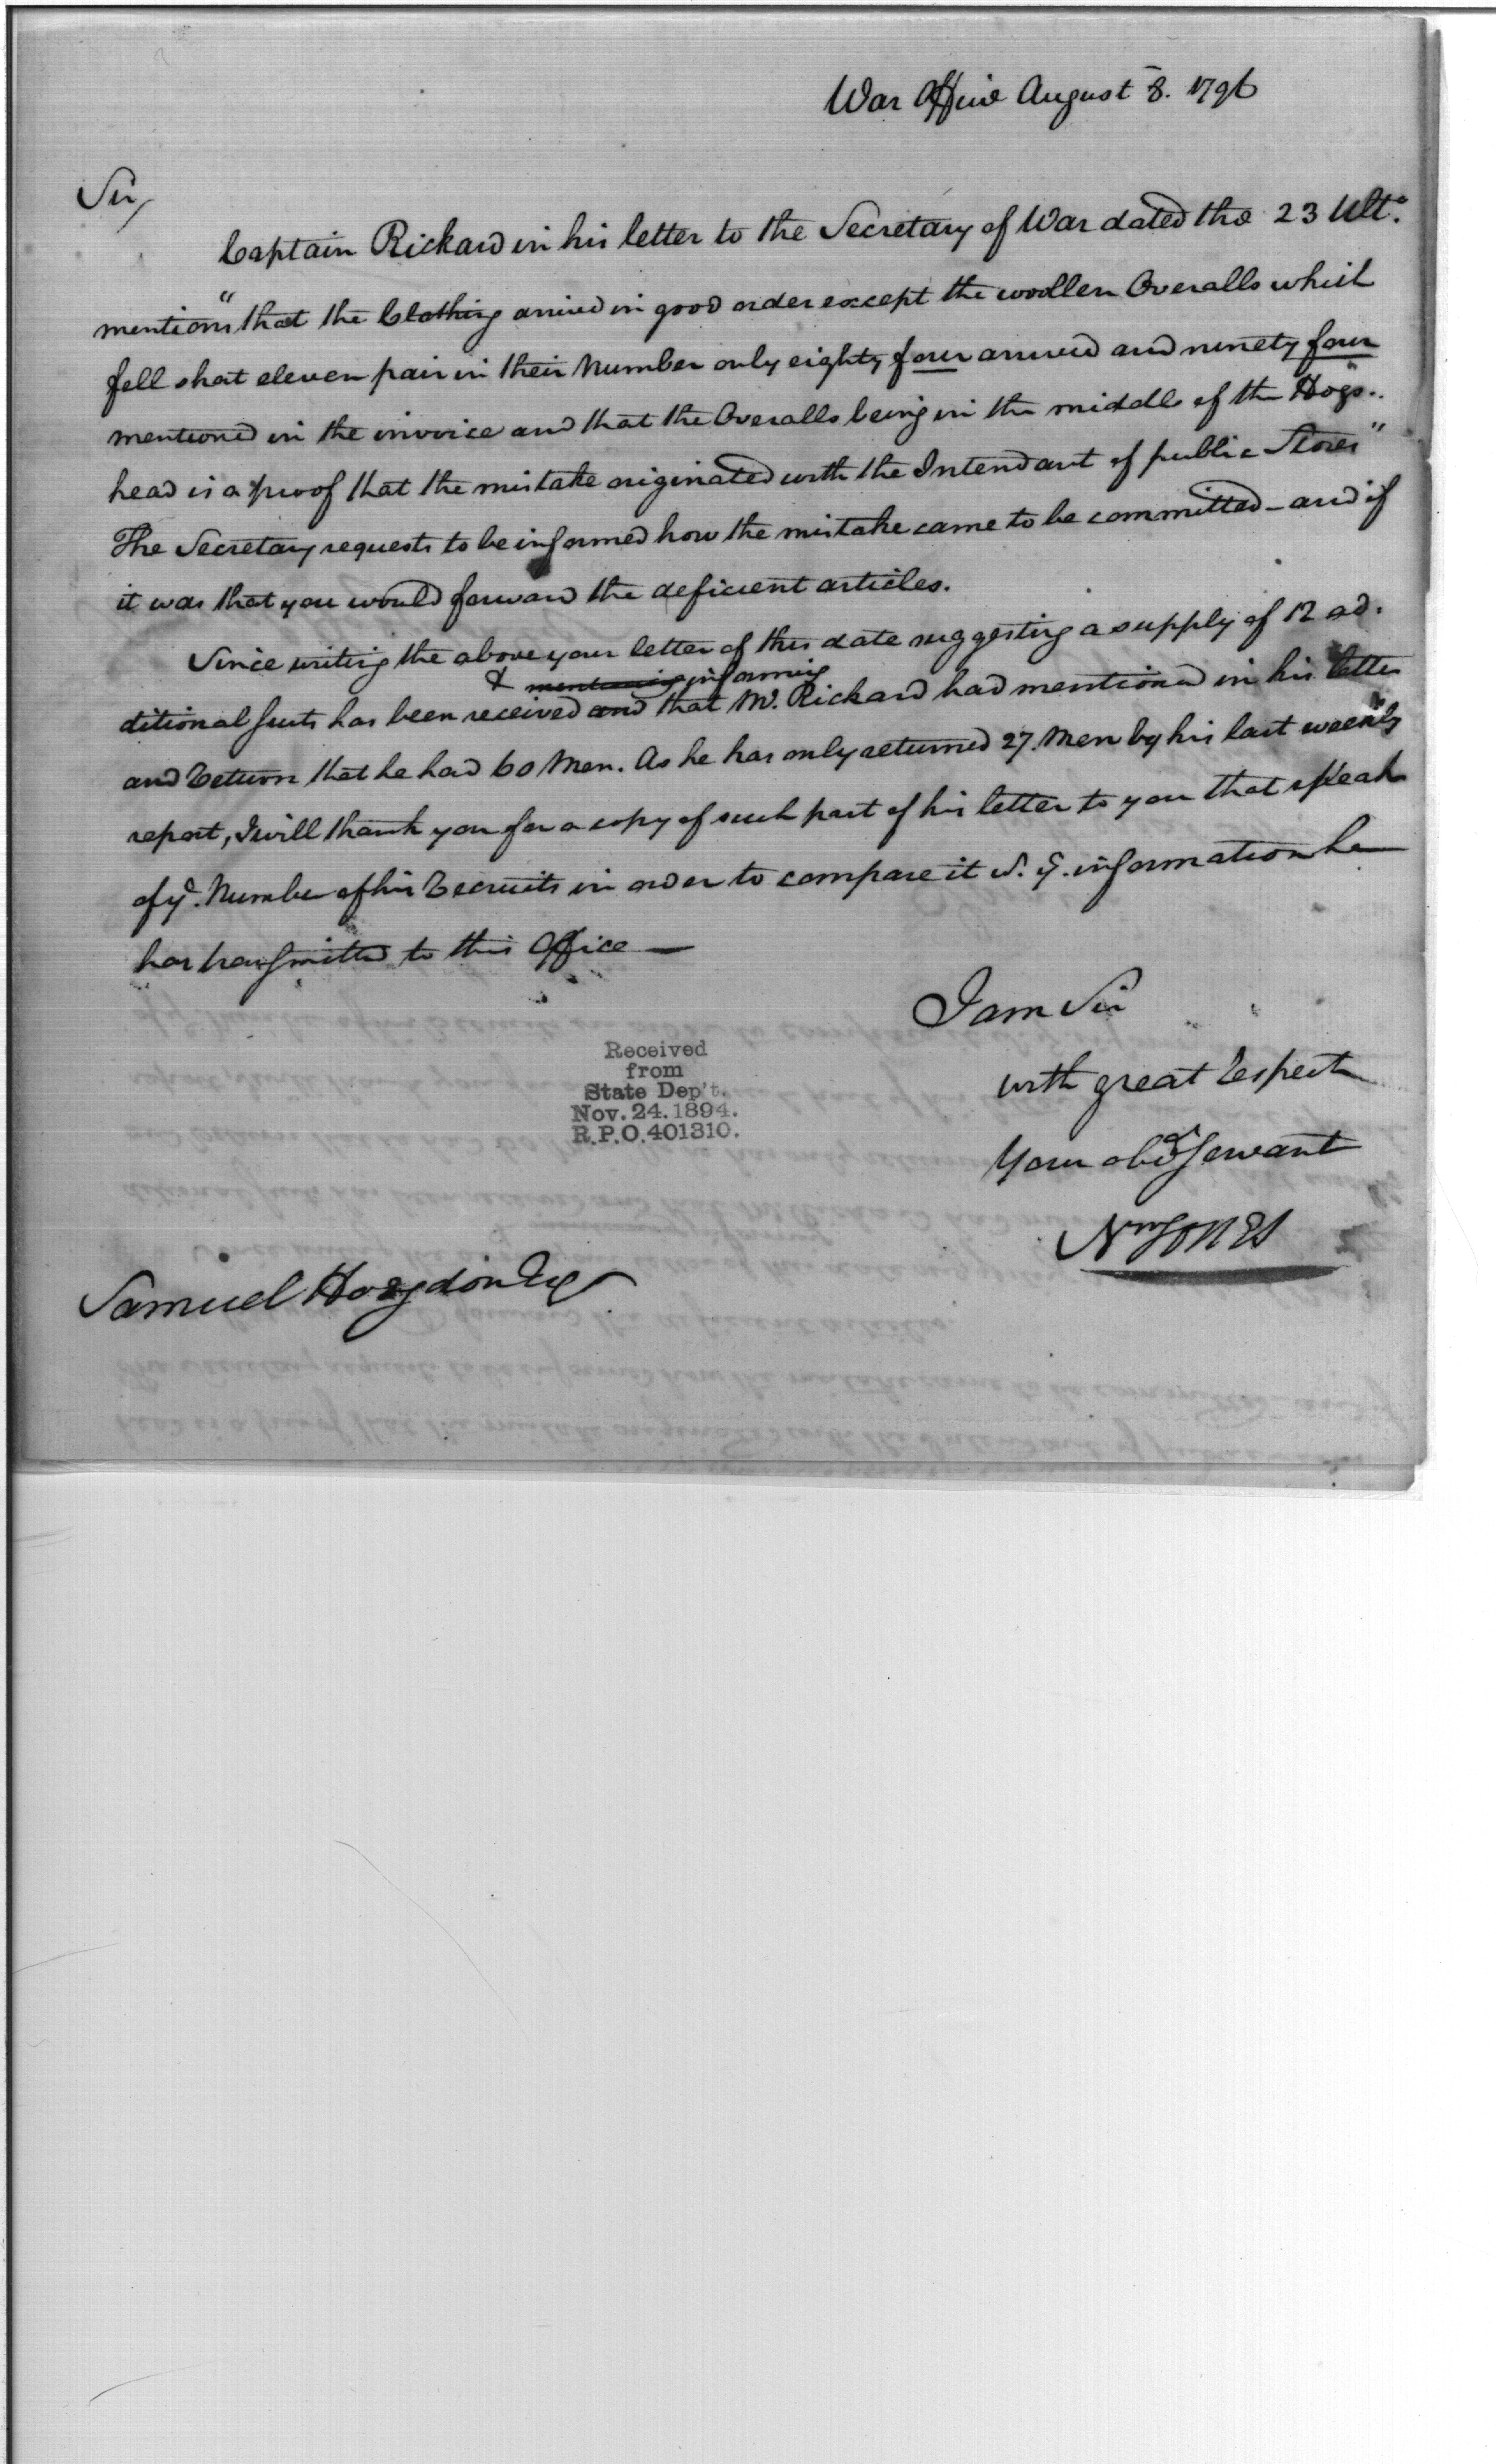 War Office August 8. 1796
Sir,
Captain Rickard in his letter to the Secretary of War dated the 23 Ulto.
mentions "that the Clothing arrived in good order except the woollen Overalls which
fell short eleven pair in their Number only eighty four arrived and ninety four
mentioned in the invoice and that the Overalls being in the middle of the Hogs..
head is a proof that the mistake originated with the Intendant of public Stores"
The Secretary requests to be informed how the mistake came to be committed - and if
it was that you would forward the deficient articles.
Since writing the above your letter of this date suggesting a supply of 12 ad.
& mentioning informing
ditional suits has been received and that Mr. Rickard had mentioned in his letter
and return that he had 60 Men. As he has only returned 27. Men by his last weekly
report, I will thank you for a copy of such part of his letter to you that speak
of ye. Number of his recruits in order to compare it w. ye. information he
has transmitted to this Office —
I am Sir
with great respect
Your obd. Servant
Nn JONES
Received
from
State Dep't.
Nov. 24. 1894.
R.P.O. 401310.
Samuel Hodgdon Esqr